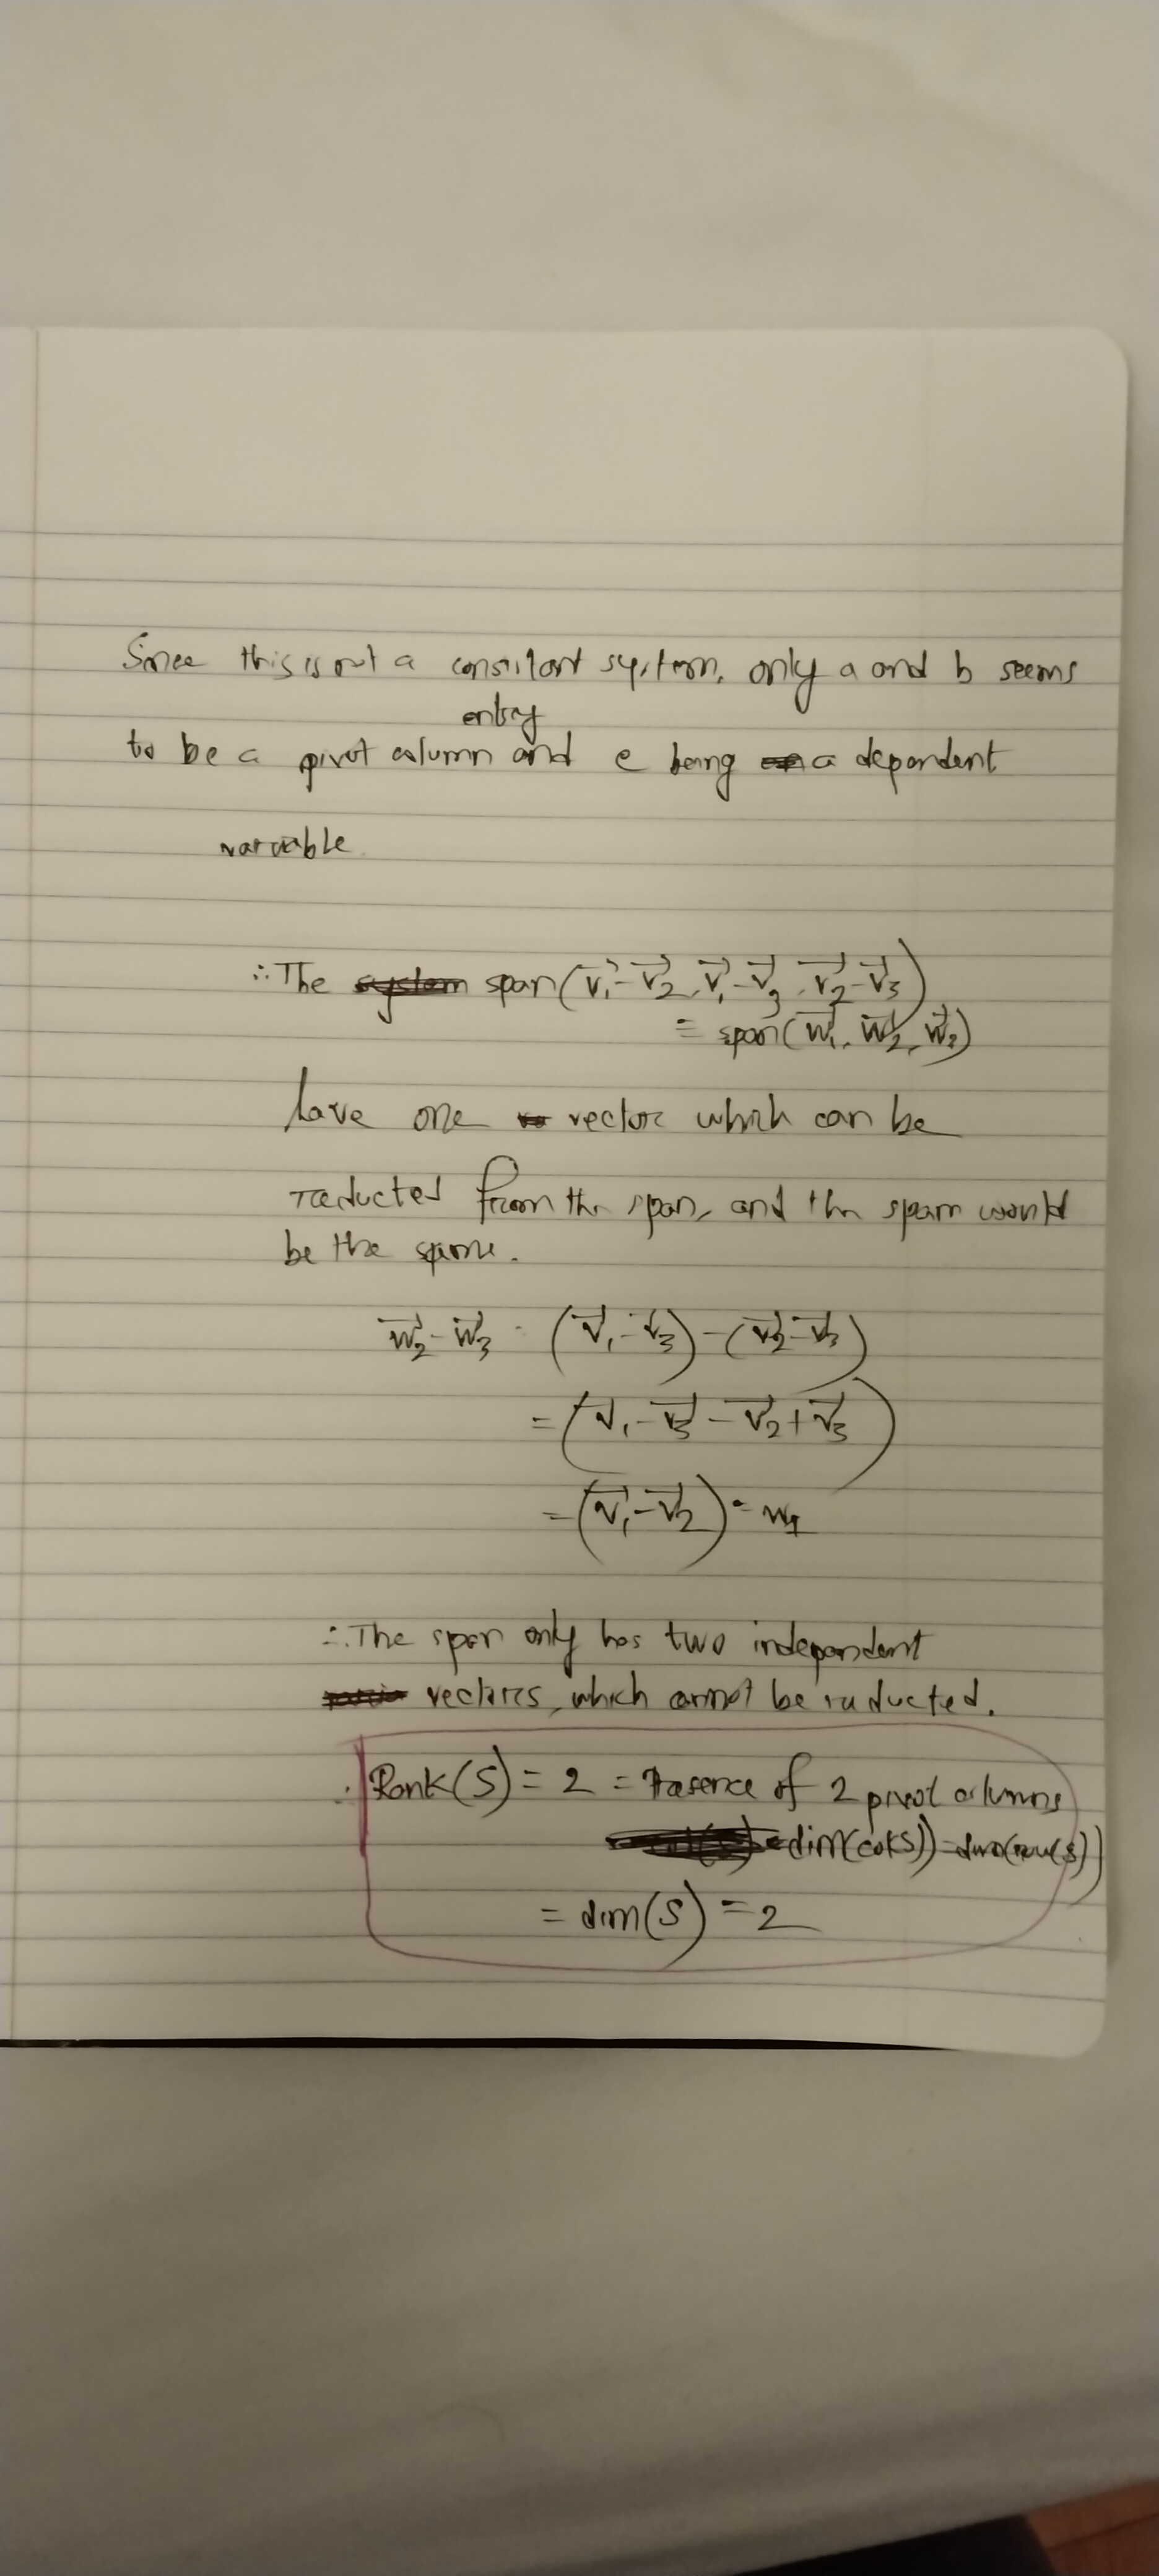 Since this is not a consistant system, only a and b seems
entry
to be a pivot column and c being a dependent
variable.
∴ The system span(v⃗₁-v⃗₂, v⃗₁-v⃗₃, v⃗₂-v⃗₃)
= span(w⃗₁, w⃗₂, w⃗₃)
have one vector which can be
reducted from the span, and the span would
be the same.
w⃗₂-w⃗₃ = (v⃗₁-v⃗₃)-(v⃗₂-v⃗₃)
= (v⃗₁-v⃗₃-v⃗₂+v⃗₃)
= (v⃗₁-v⃗₂) = w₁
∴ The span only has two independent
vectors, which cannot be reducted.
∴ Rank(S) = 2 = Presence of 2 pivot columns
= dim(col(S)) = dim(row(S))
= dim(S) = 2